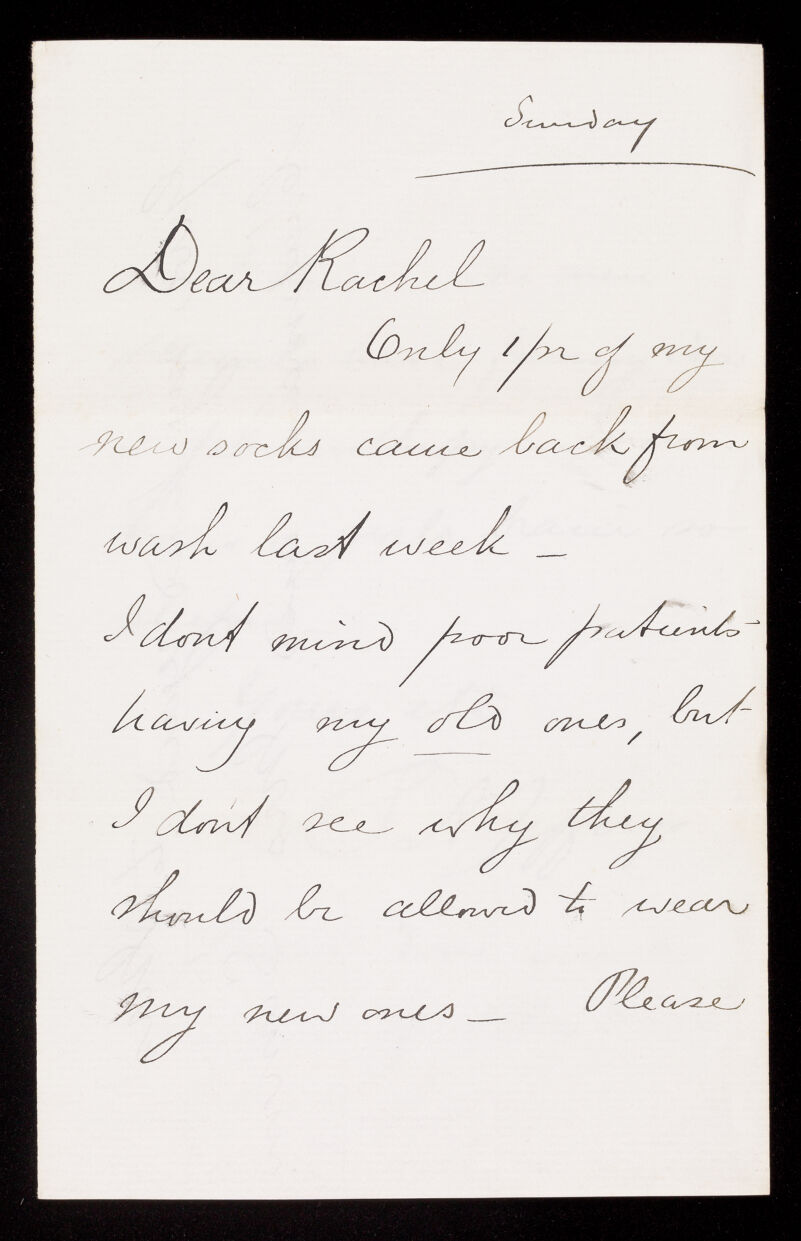 Sunday
Dear Rachel
Only 1/pr of my
new socks came back from
wash last week –
I don't mind poor patients
having my old ones, but
I don't see why they
should be allowed to wear
my new ones – Please